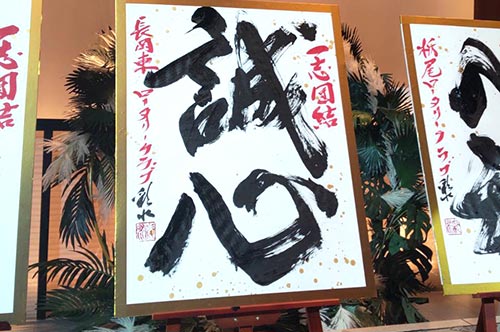 一志団結
誠心
長岡東ロータリークラブ
一志団結
栃尾ロータリークラブ